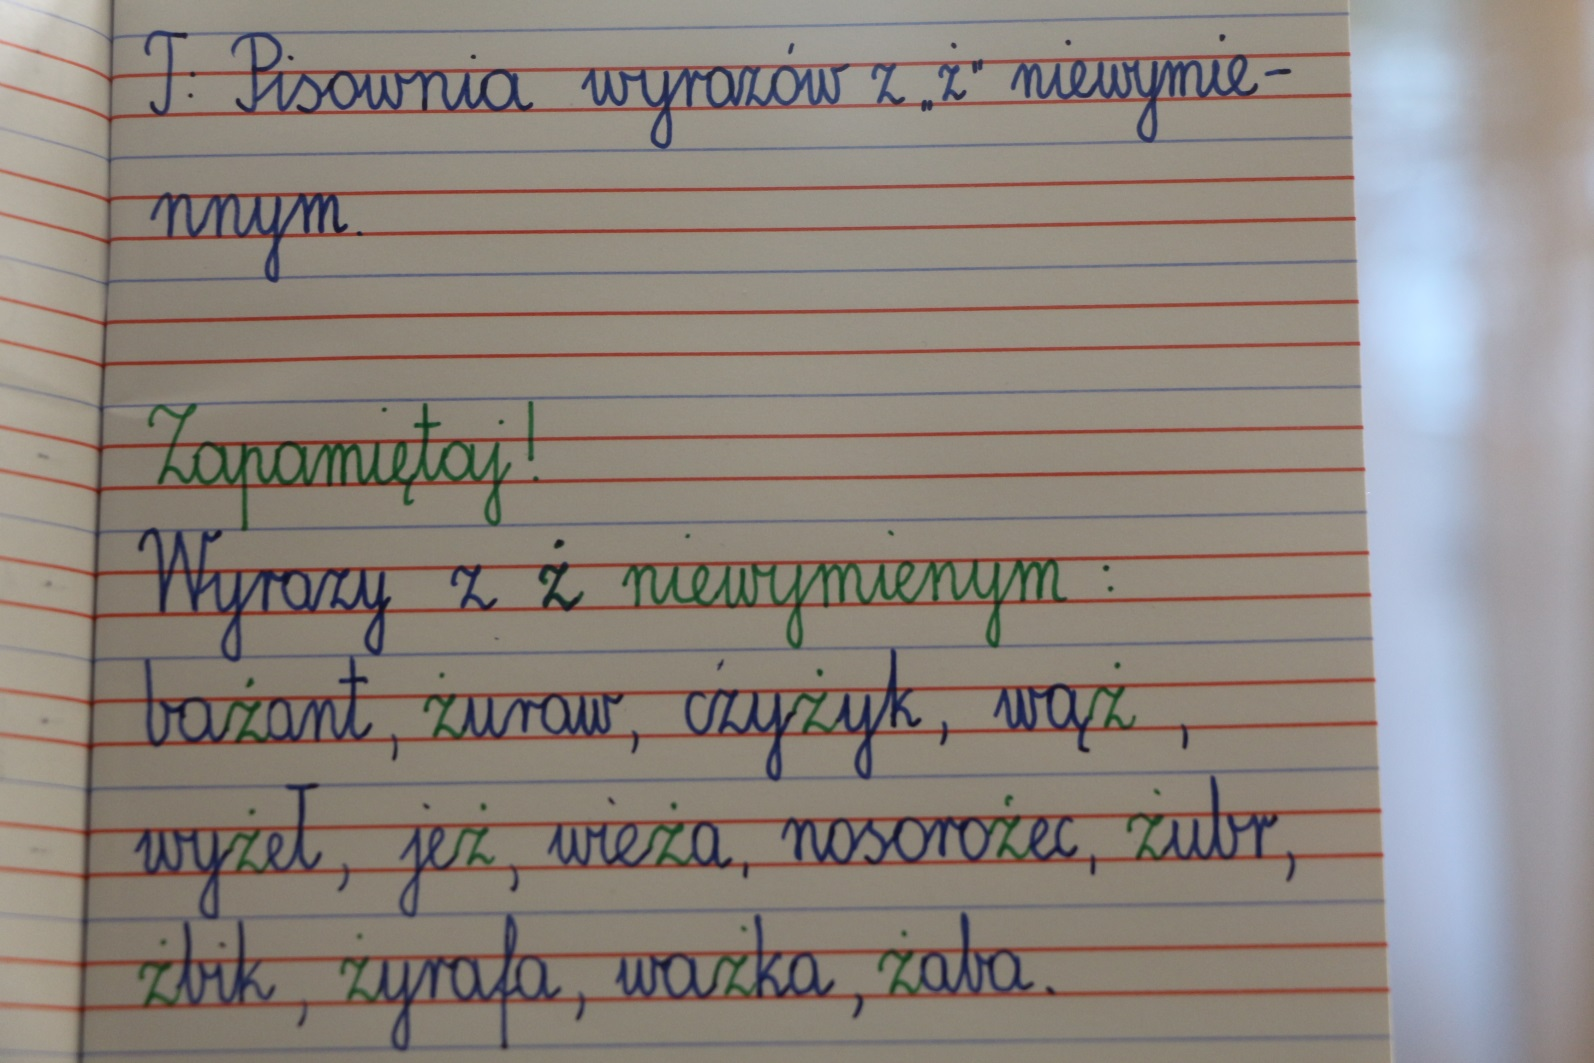 T: Pisownia wyrazów z „ż" niewymie-
nnym.
Zapamiętaj!
Wyrazy z ż niewymienym :
bażant, żuraw, ćzyżyk, wąż ,
wyżeł, jeż, wieża, nosorożec, żubr,
żbik, żyrafa, ważka, żaba.